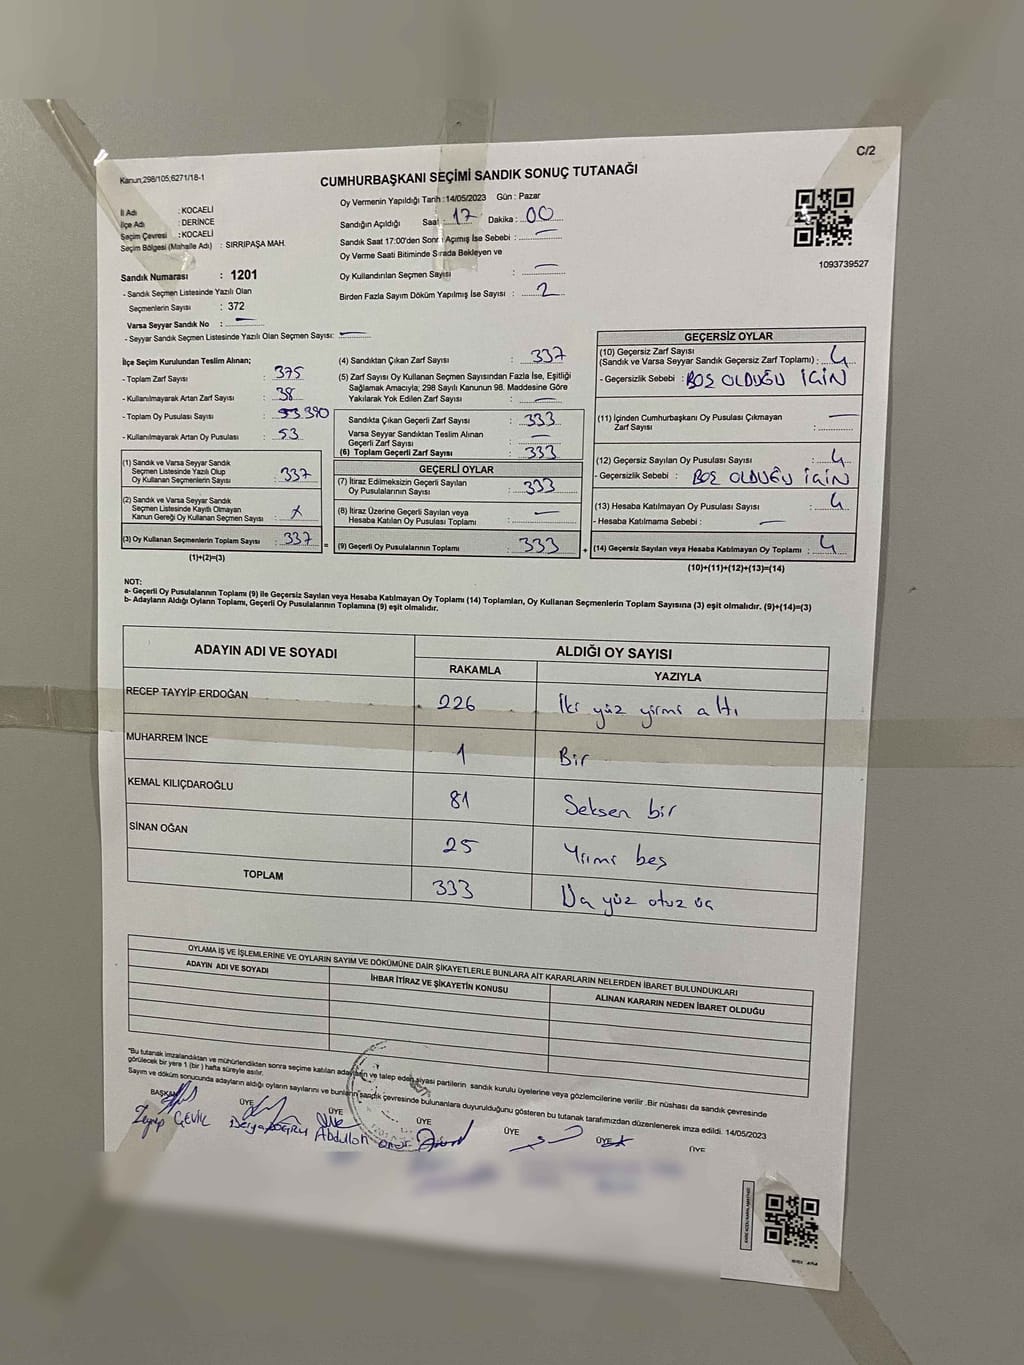 C/2
Kanun;298/105;6271/18-1
CUMHURBAŞKANI SEÇİMİ SANDIK SONUÇ TUTANAĞI
İl Adı : KOCAELİ
İlçe Adı : DERİNCE
Seçim Çevresi : KOCAELİ
Seçim Bölgesi (Mahalle Adı) : SIRRIPAŞA MAH.
Sandık Numarası : 1201
- Sandık Seçmen Listesinde Yazılı Olan
Seçmenlerin Sayısı : 372
Varsa Seyyar Sandık No :
- Seyyar Sandık Seçmen Listesinde Yazılı Olan Seçmen Sayısı:
Oy Vermenin Yapıldığı Tarih :14/05/2023 Gün : Pazar
Sandığın Açıldığı Saat : 17 Dakika : 00
Sandık Saat 17:00'den Sonra Açımış İse Sebebi :
Oy Verme Saati Bitiminde Sırada Bekleyen ve
Oy Kullandırılan Seçmen Sayısı :
Birden Fazla Sayım Döküm Yapılmış İse Sayısı : 2
1093739527
İlçe Seçim Kurulundan Teslim Alınan;
- Toplam Zarf Sayısı : 375
- Kullanılmayarak Artan Zarf Sayısı : 38
- Toplam Oy Pusulası Sayısı : 390
- Kullanılmayarak Artan Oy Pusulası : 53
(1) Sandık ve Varsa Seyyar Sandık
Seçmen Listesinde Yazılı Olup
Oy Kullanan Seçmenlerin Sayısı : 337
(2) Sandık ve Varsa Seyyar Sandık
Seçmen Listesinde Kayıtlı Olmayan
Kanun Gereği Oy Kullanan Seçmen Sayısı : x
(3) Oy Kullanan Seçmenlerin Toplam Sayısı : 337 =
(1)+(2)=(3)
(4) Sandıktan Çıkan Zarf Sayısı : 337
(5) Zarf Sayısı Oy Kullanan Seçmen Sayısından Fazla İse, Eşitliği
Sağlamak Amacıyla; 298 Sayılı Kanunun 98. Maddesine Göre
Yakılarak Yok Edilen Zarf Sayısı :
Sandıkta Çıkan Geçerli Zarf Sayısı : 333
Varsa Seyyar Sandıktan Teslim Alınan
Geçerli Zarf Sayısı :
(6) Toplam Geçerli Zarf Sayısı : 333
GEÇERLİ OYLAR
(7) İtiraz Edilmeksizin Geçerli Sayılan
Oy Pusulalarının Sayısı : 333
(8) İtiraz Üzerine Geçerli Sayılan veya
Hesaba Katılan Oy Pusulası Toplamı :
(9) Geçerli Oy Pusulalarının Toplamı : 333 +
GEÇERSİZ OYLAR
(10) Geçersiz Zarf Sayısı
(Sandık ve Varsa Seyyar Sandık Geçersiz Zarf Toplamı) : 4
- Geçersizlik Sebebi : BOŞ OLDUĞU İÇİN
(11) İçinden Cumhurbaşkanı Oy Pusulası Çıkmayan
Zarf Sayısı :
(12) Geçersiz Sayılan Oy Pusulası Sayısı : 4
- Geçersizlik Sebebi : BOŞ OLDUĞU İÇİN
(13) Hesaba Katılmayan Oy Pusulası Sayısı : 4
- Hesaba Katılmama Sebebi :
(14) Geçersiz Sayılan veya Hesaba Katılmayan Oy Toplamı : 4
(10)+(11)+(12)+(13)=(14)
NOT:
a- Geçerli Oy Pusulalarının Toplamı (9) ile Geçersiz Sayılan veya Hesaba Katılmayan Oy Toplamı (14) Toplamları, Oy Kullanan Seçmenlerin Toplam Sayısına (3) eşit olmalıdır. (9)+(14)=(3)
b- Adayların Aldığı Oyların Toplamı, Geçerli Oy Pusulalarının Toplamına (9) eşit olmalıdır.
ADAYIN ADI VE SOYADI
ALDIĞI OY SAYISI
RAKAMLA YAZIYLA
RECEP TAYYİP ERDOĞAN 226 İki yüz yirmi altı
MUHARREM İNCE 1 Bir
KEMAL KILIÇDAROĞLU 81 Seksen bir
SİNAN OĞAN 25 Yirmi beş
TOPLAM 333 Üç yüz otuz üç
OYLAMA İŞ VE İŞLEMLERİNE VE OYLARIN SAYIM VE DÖKÜMÜNE DAİR ŞİKAYETLERLE BUNLARA AİT KARARLARIN NELERDEN İBARET BULUNDUKLARI
ADAYIN ADI VE SOYADI İHBAR İTİRAZ VE ŞİKAYETİN KONUSU ALINAN KARARIN NEDEN İBARET OLDUĞU
"Bu tutanak imzalandıktan ve mühürlendikten sonra seçime katılan adayların ve talep eden siyasi partilerin sandık kurulu üyelerine veya gözlemcilerine verilir. Bir nüshası da sandık çevresinde
görülecek bir yere 1 (bir) hafta süreyle asılır.
Sayım ve döküm sonucunda adayların aldığı oyların sayılarını ve bunların sandık çevresinde bulunanlara duyurulduğunu gösteren bu tutanak tarafımızdan düzenlenerek imza edildi. 14/05/2023
BAŞKAN ÜYE ÜYE ÜYE ÜYE ÜYE ÜYE
Zeynep ÇEVİK Derya DOĞRU Abdullah